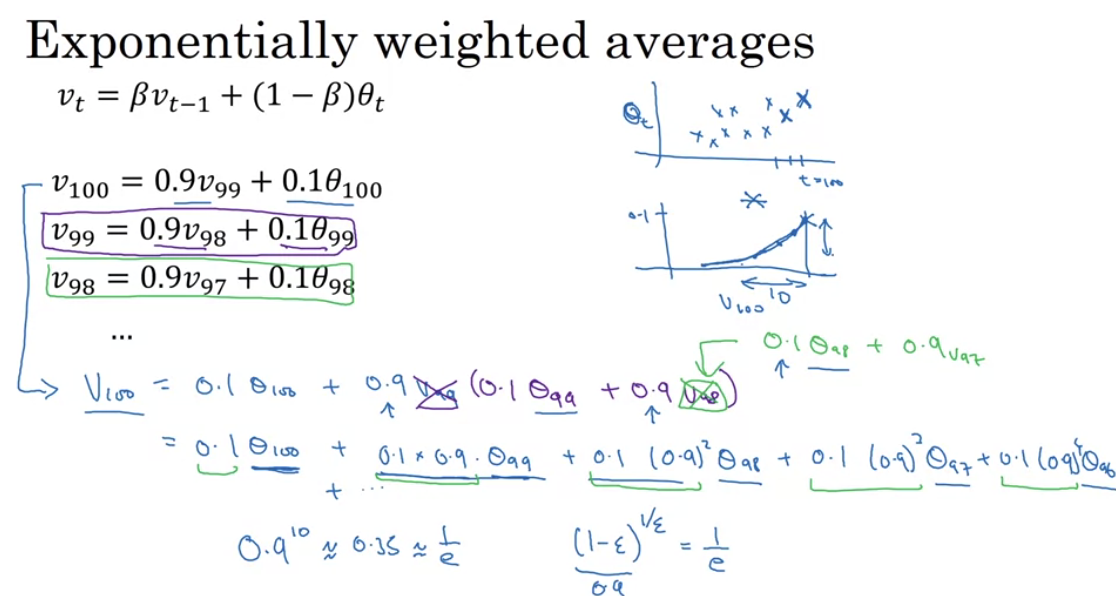 Exponentially weighted averages
v_t = βv_{t−1} + (1 − β)θ_t
θ_t
t=100
v_100 = 0.9v_99 + 0.1θ_100
v_99 = 0.9v_98 + 0.1θ_99
v_98 = 0.9v_97 + 0.1θ_98
...
0.1
10
V_100
0.1 θ_98 + 0.9 v_97
V_100 = 0.1 θ_100 + 0.9 v_99 (0.1 θ_99 + 0.9 v_98)
= 0.1 θ_100 + 0.1 × 0.9 · θ_99 + 0.1 (0.9)² θ_98 + 0.1 (0.9)³ θ_97 + 0.1 (0.9)⁴ θ_96
+ ...
0.9^10 ≈ 0.35 ≈ 1/e
(1-ε)^{1/ε} = 1/e
0.9